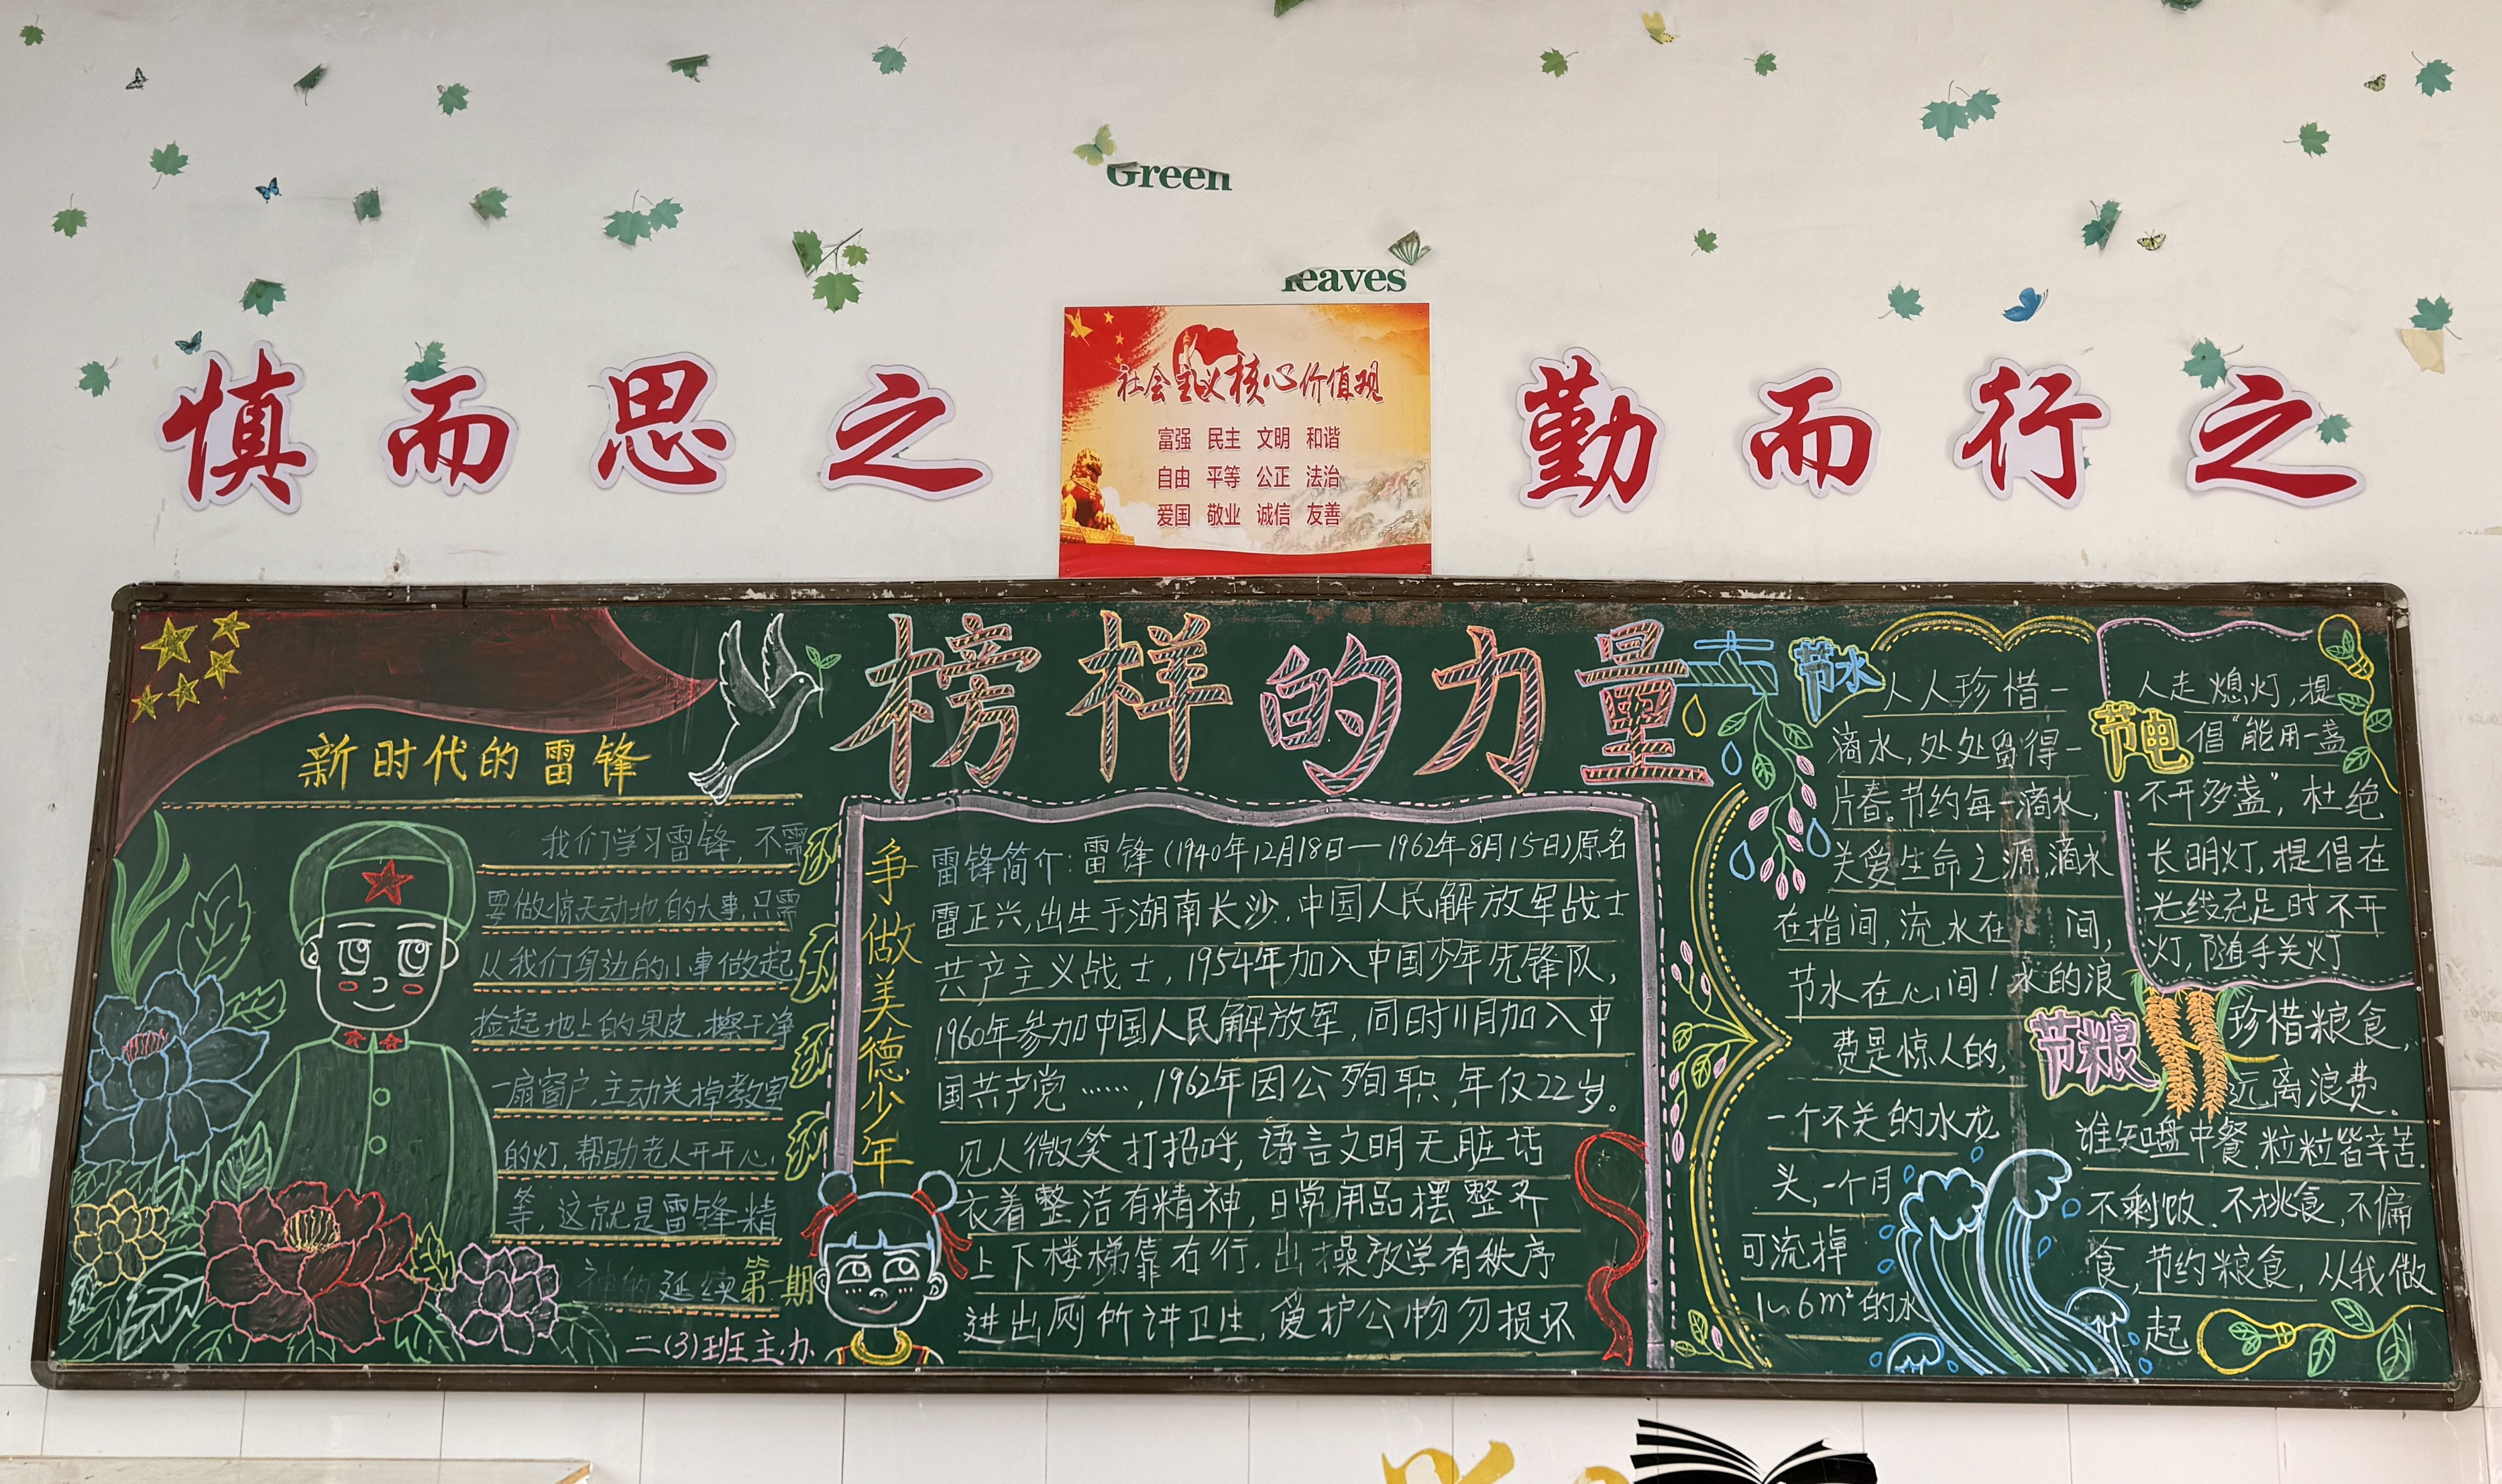 Green
leaves
慎而思之
社会主义核心价值观
富强 民主 文明 和谐
自由 平等 公正 法治
爱国 敬业 诚信 友善
勤而行之
榜样的力量
新时代的雷锋
我们学习雷锋，不需
要做惊天动地的大事，只需
从我们身边的小事做起
捡起地上的果皮，擦干净
一扇窗户，主动关掉教室
的灯，帮助老人开开心，
等，这就是雷锋精
神的延续
第一期
二(3)班主办
争做美德少年
雷锋简介：雷锋(1940年12月18日—1962年8月15日)原名
雷正兴，出生于湖南长沙，中国人民解放军战士
共产主义战士，1954年加入中国少年先锋队，
1960年参加中国人民解放军，同时11月加入中
国共产党……，1962年因公殉职，年仅22岁。
见人微笑打招呼，语言文明无脏话
衣着整洁有精神，日常用品摆整齐
上下楼梯靠右行，出操放学有秩序
进出厕所讲卫生，爱护公物勿损坏
节水
人人珍惜一
滴水，处处留得一
片春。节约每一滴水，
关爱生命之源，滴水
在指间，流水在 间，
节水在心间！水的浪
费是惊人的，
一个不关的水龙
头，一个月
可流掉
1~6m²的水
节电
人走熄灯，提
倡“能用一盏
不开多盏”，杜绝
长明灯，提倡在
光线充足时不开
灯，随手关灯
节粮
珍惜粮食，
远离浪费。
谁知盘中餐，粒粒皆辛苦.
不剩饭，不挑食，不偏
食，节约粮食，从我做
起